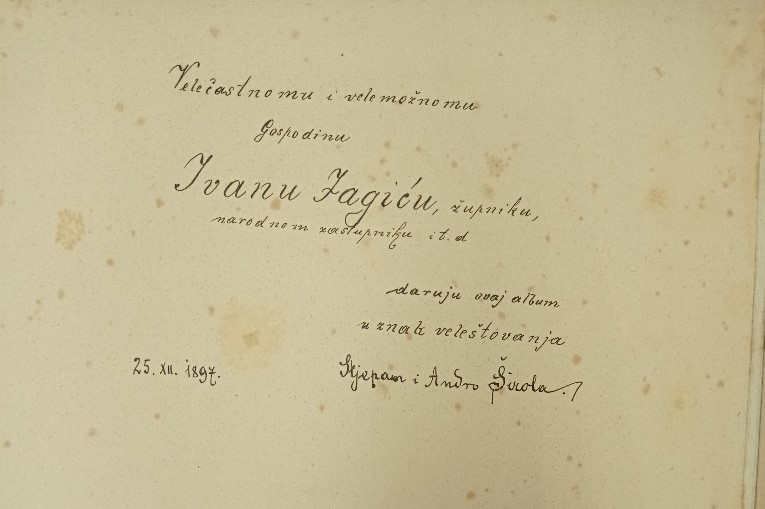 Velečastnomu i velemožnomu
Gospodinu
Ivanu Jagiću, župniku,
narodnom zastupniku i t. d
daruju ovaj album
u znak veleštovanja
25. XII. 1897.
Stjepan i Andro Širola.